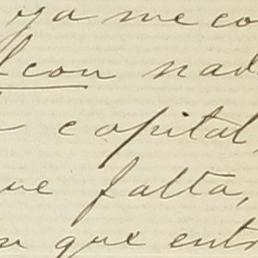 ya me co
lcon nad
capital,
ue falta,
que ent